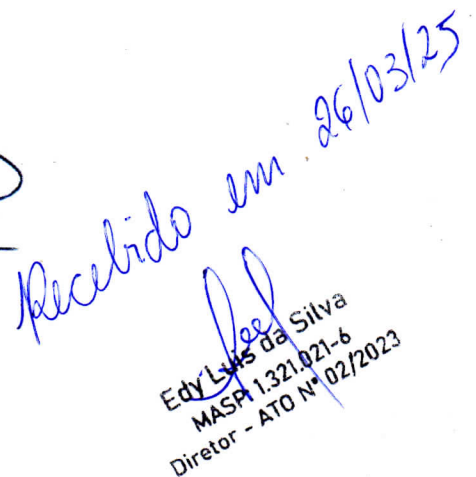 Recebido em 26/03/25
Edy Luis da Silva
MASP 1.321.021-6
Diretor - ATO N° 02/2023